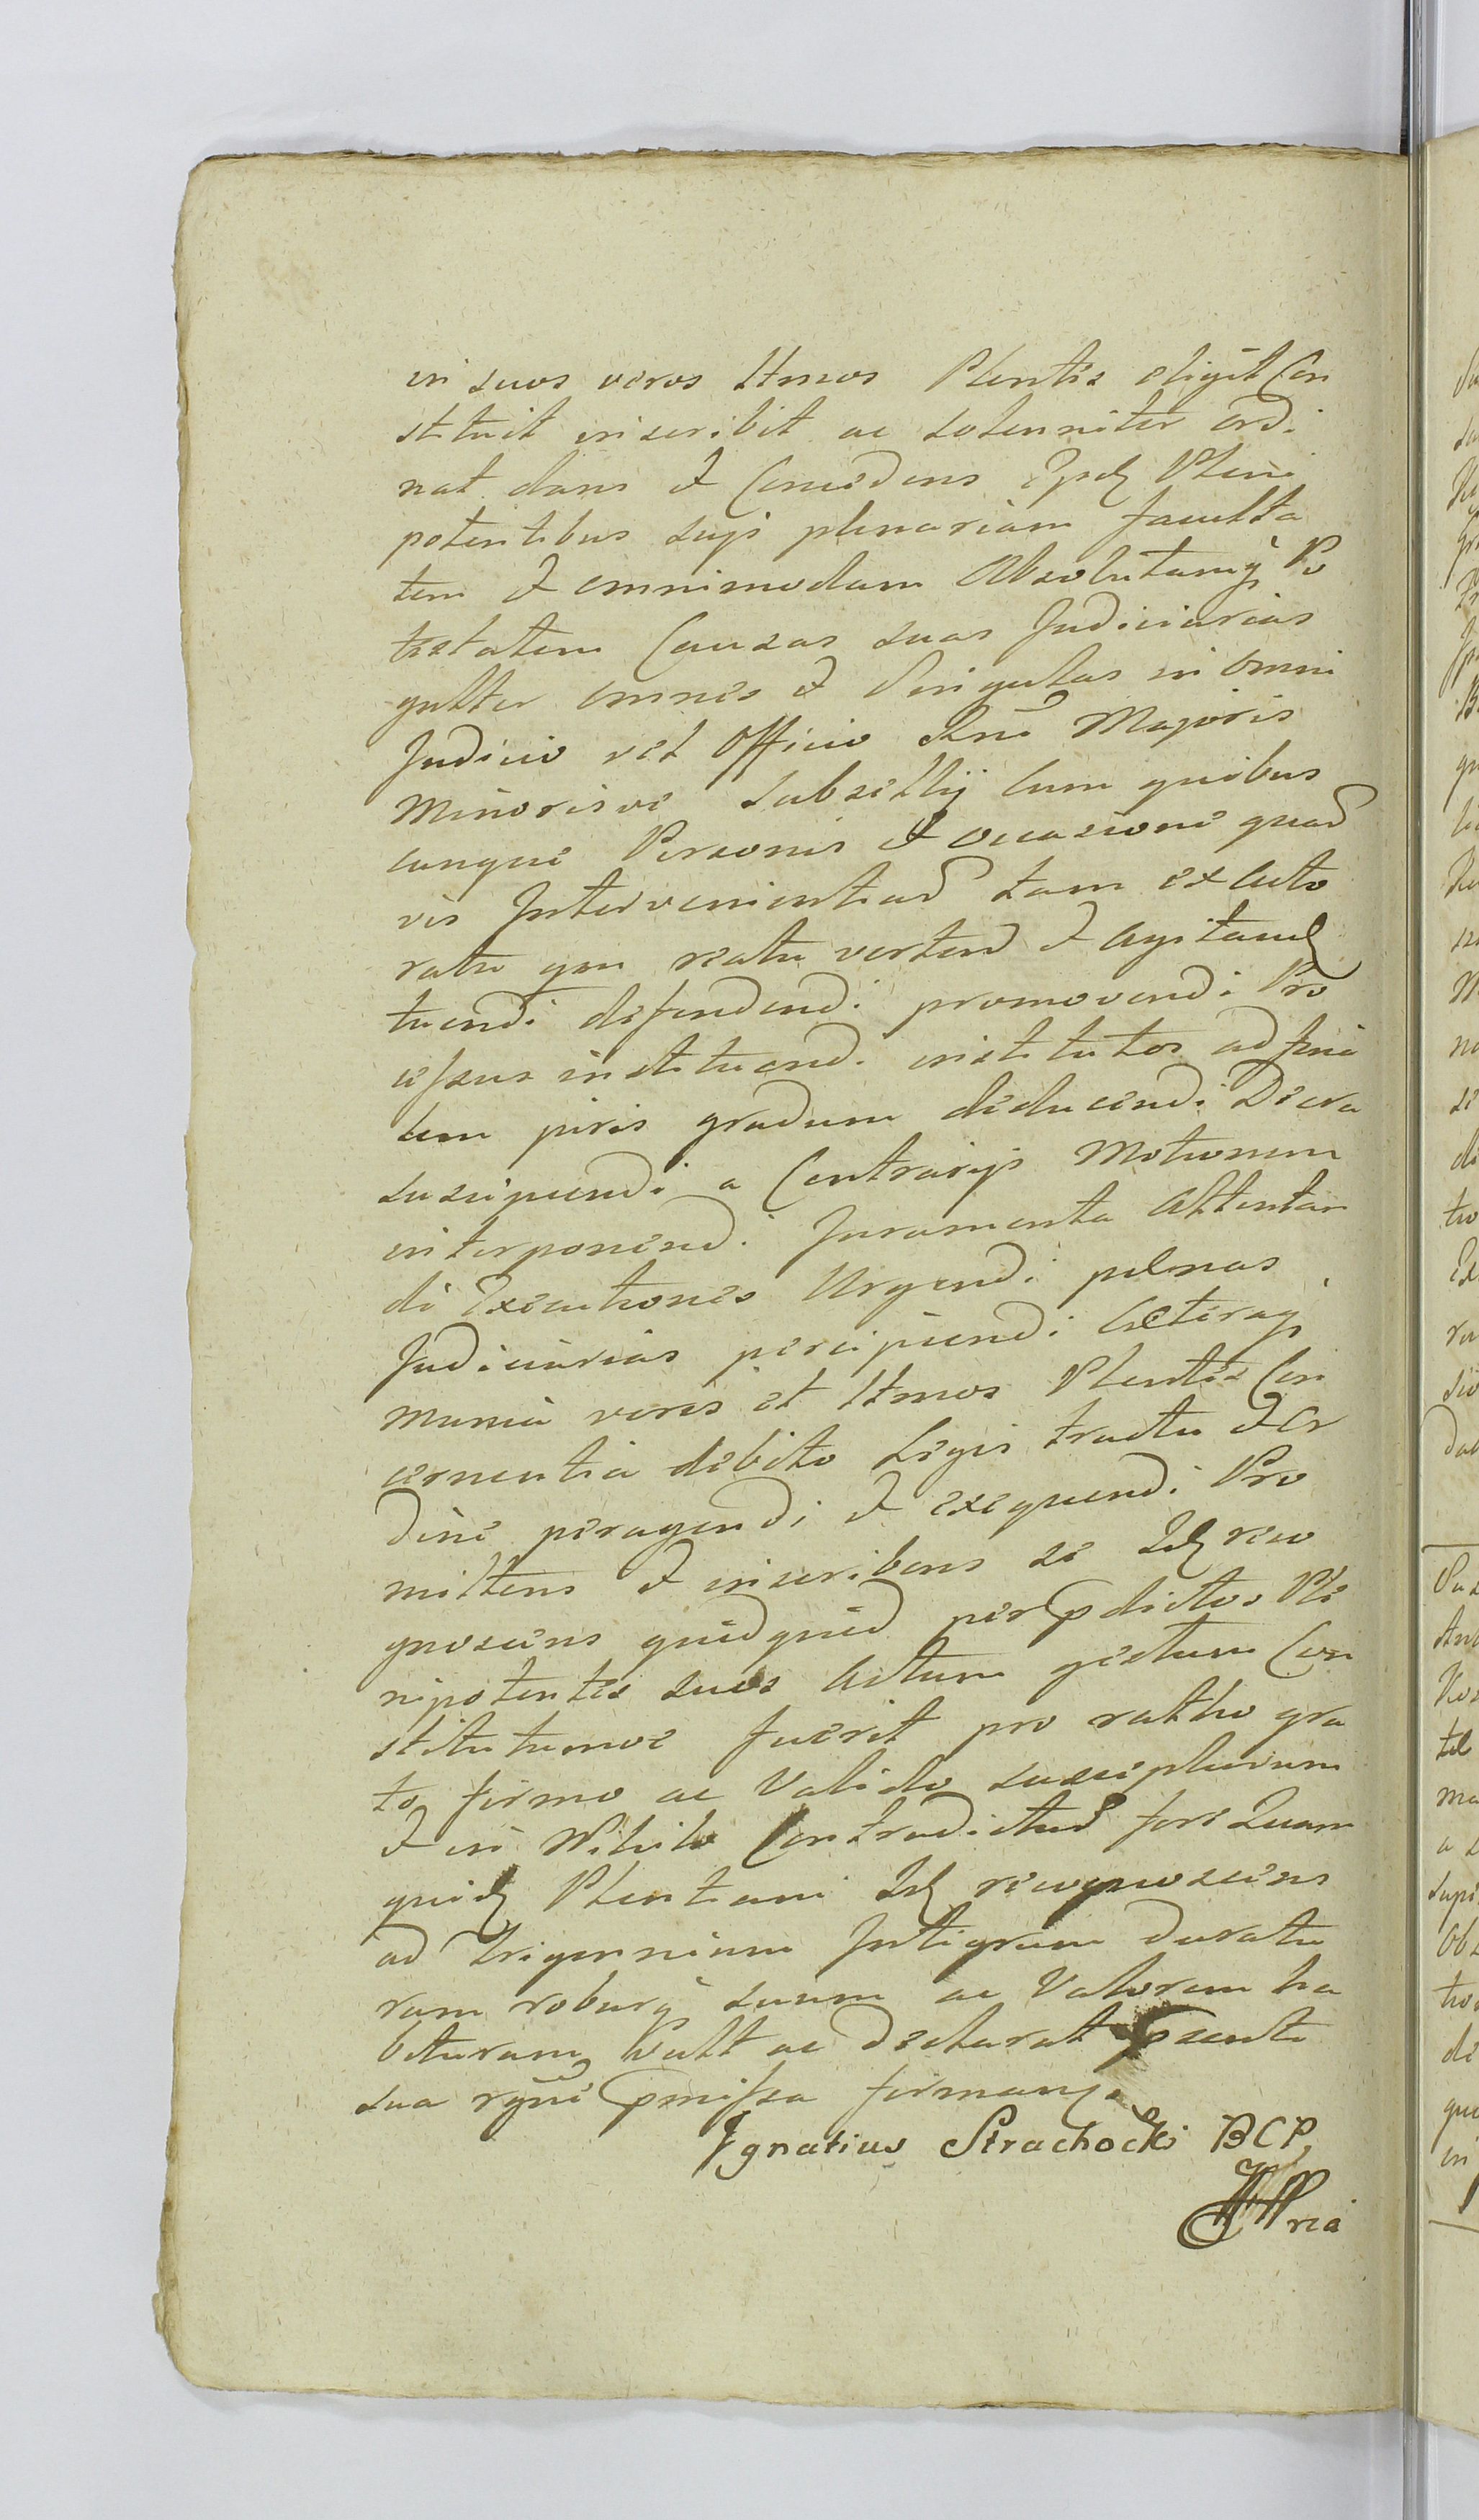 in suos veros Ltmos Plentes eligit Con
stituit inscribit ac solenniter ordi
nat dans et Concedens Ipsd Pleni
potentibus suijs plenariam faculta
tem et omnimodam Absolutamq Po
testatem Causas suas Judiciarias
gnltter omnes et Singulas in omni
Judicio vel Officio Rni Majoris
Minorisve Subsellij Cum quibus
cunque Personis et occasione quad
vis Intervenientiad tam ex Acto
ratu qm reatu vertend et Agitand
tuendi defendendi promovendi Pro
cessus instituendi institutos ad fina
lem juris gradum deducendi Decra
suscipiendi a Contrarijs Motionem
interponendi Juramenta Attentan
di Executiones Urgendi pelnas
Judiciarias percipiendi Cæteraq
munia veros et Ltmos Plentes Con
cernentia debito Legis tractu et Or
dine peragendi et exequendi Pro
mittens et inscribens se Id reco
gnoscens quidquid per pdictos Ple
nipotentes suos Actum gestum Con
stitutumve fuerit pro ratho gra
to firmo ac Valido suscepturum
et in Nihilo Contradictud fore Quam
quid Plentiam Id recognoscens
ad trigennium Integrum duratu
ram roburq suum ac Valorem ha
bituram Vult ac declarat psenti
sua rgni pmissa firmanq.
Ignatius Strachocki BCP
mria